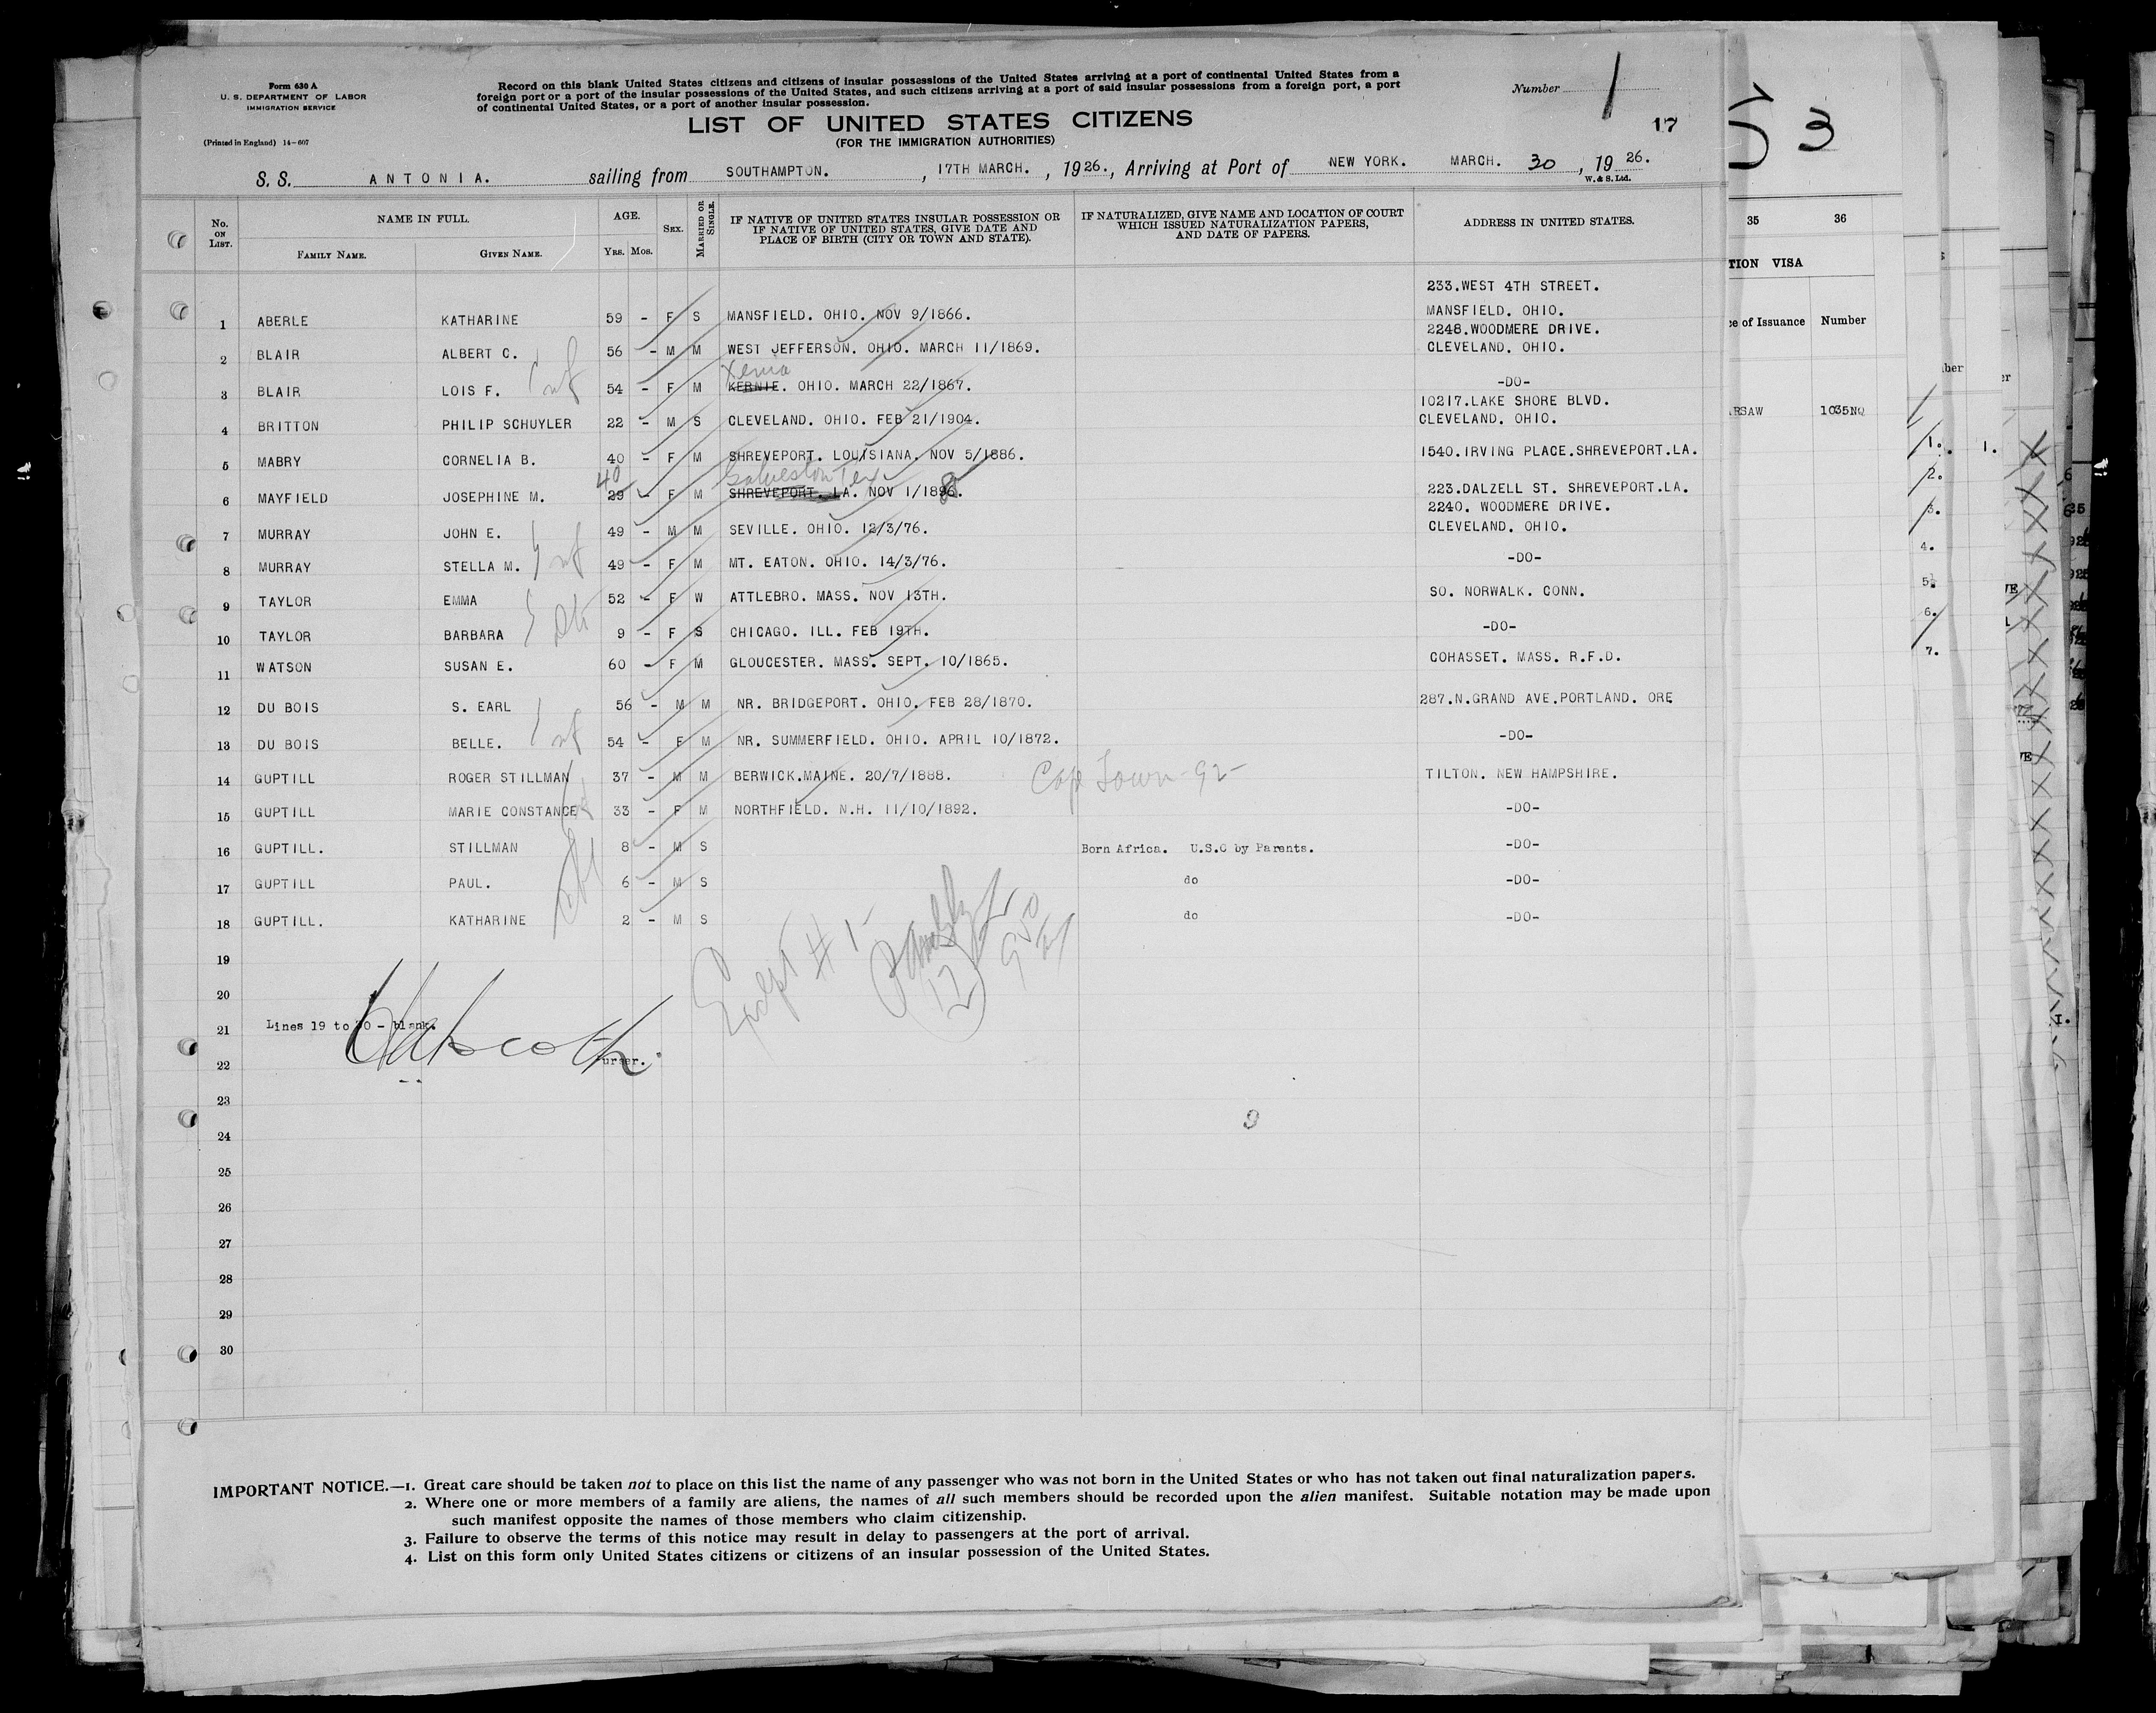 Form 630 A
U. S. DEPARTMENT OF LABOR
IMMIGRATION SERVICE
(Printed in England) 14-607
Record on this blank United States citizens and citizens of insular possessions of the United States arriving at a port of continental United States from a
foreign port or a port of the insular possessions of the United States, and such citizens arriving at a port of said insular possessions from a foreign port, a port
of continental United States, or a port of another insular possession.
Number 1
17
LIST OF UNITED STATES CITIZENS
(FOR THE IMMIGRATION AUTHORITIES)
S. S. ANTONIA. sailing from SOUTHAMPTON. , 17TH MARCH. , 1926., Arriving at Port of NEW YORK. MARCH. 30 , 19 26.
W. & S. Ltd.
No. ON LIST. NAME IN FULL. AGE. SEX. MARRIED OR SINGLE. IF NATIVE OF UNITED STATES INSULAR POSSESSION OR IF NATIVE OF UNITED STATES, GIVE DATE AND PLACE OF BIRTH (CITY OR TOWN AND STATE). IF NATURALIZED, GIVE NAME AND LOCATION OF COURT WHICH ISSUED NATURALIZATION PAPERS, AND DATE OF PAPERS. ADDRESS IN UNITED STATES.
FAMILY NAME. GIVEN NAME. YRS. MOS.
233.WEST 4TH STREET.
1 ABERLE KATHARINE 59 - F S MANSFIELD. OHIO. NOV 9/1866. MANSFIELD. OHIO.
2248.WOODMERE DRIVE.
2 BLAIR ALBERT C. 56 - M M WEST JEFFERSON. OHIO. MARCH 11/1869. CLEVELAND. OHIO.
Xenia
3 BLAIR LOIS F. 54 - F M KERNIE. OHIO. MARCH 22/1867. -DO-
10217.LAKE SHORE BLVD.
4 BRITTON PHILIP SCHUYLER 22 - M S CLEVELAND. OHIO. FEB 21/1904. CLEVELAND. OHIO.
5 MABRY CORNELIA B. 40 - F M SHREVEPORT. LOUISIANA. NOV 5/1886. 1540.IRVING PLACE.SHREVEPORT.LA.
40 Galveston Tex
6 MAYFIELD JOSEPHINE M. 29 - F M SHREVEPORT. LA. NOV 1/1896. 8 223.DALZELL ST. SHREVEPORT.LA.
2240. WOODMERE DRIVE.
7 MURRAY JOHN E. 49 - M M SEVILLE. OHIO. 12/3/76. CLEVELAND. OHIO.
8 MURRAY STELLA M. 49 - F M MT. EATON. OHIO. 14/3/76. -DO-
9 TAYLOR EMMA 52 - F W ATTLEBRO. MASS. NOV 13TH. SO. NORWALK. CONN.
10 TAYLOR BARBARA 9 - F S CHICAGO. ILL. FEB 19TH. -DO-
11 WATSON SUSAN E. 60 - F M GLOUCESTER. MASS. SEPT. 10/1865. COHASSET. MASS. R.F.D.
12 DU BOIS S. EARL 56 - M M NR. BRIDGEPORT. OHIO. FEB 28/1870. 287.N.GRAND AVE.PORTLAND. ORE
13 DU BOIS BELLE. 54 - F M NR. SUMMERFIELD. OHIO. APRIL 10/1872. -DO-
14 GUPTILL ROGER STILLMAN 37 - M M BERWICK.MAINE. 20/7/1888. Cape Town-92- TILTON. NEW HAMPSHIRE.
15 GUPTILL MARIE CONSTANCE 33 - F M NORTHFIELD. N.H. 11/10/1892. -DO-
16 GUPTILL. STILLMAN 8 - M S Born Africa. U.S.C by Parents. -DO-
17 GUPTILL PAUL. 6 - M S do -DO-
18 GUPTILL. KATHARINE 2 - M S do -DO-
19
20
21 Lines 19 to 30 - blank.
22 Purser.
23
24
25
26
27
28
29
30
Except # 1-
17
9
IMPORTANT NOTICE.—1. Great care should be taken not to place on this list the name of any passenger who was not born in the United States or who has not taken out final naturalization papers.
2. Where one or more members of a family are aliens, the names of all such members should be recorded upon the alien manifest. Suitable notation may be made upon
such manifest opposite the names of those members who claim citizenship.
3. Failure to observe the terms of this notice may result in delay to passengers at the port of arrival.
4. List on this form only United States citizens or citizens of an insular possession of the United States.
53
35 36
TION VISA
ce of Issuance Number
RSAW 1035NQ
1.
2.
3.
4.
5.
6.
7.